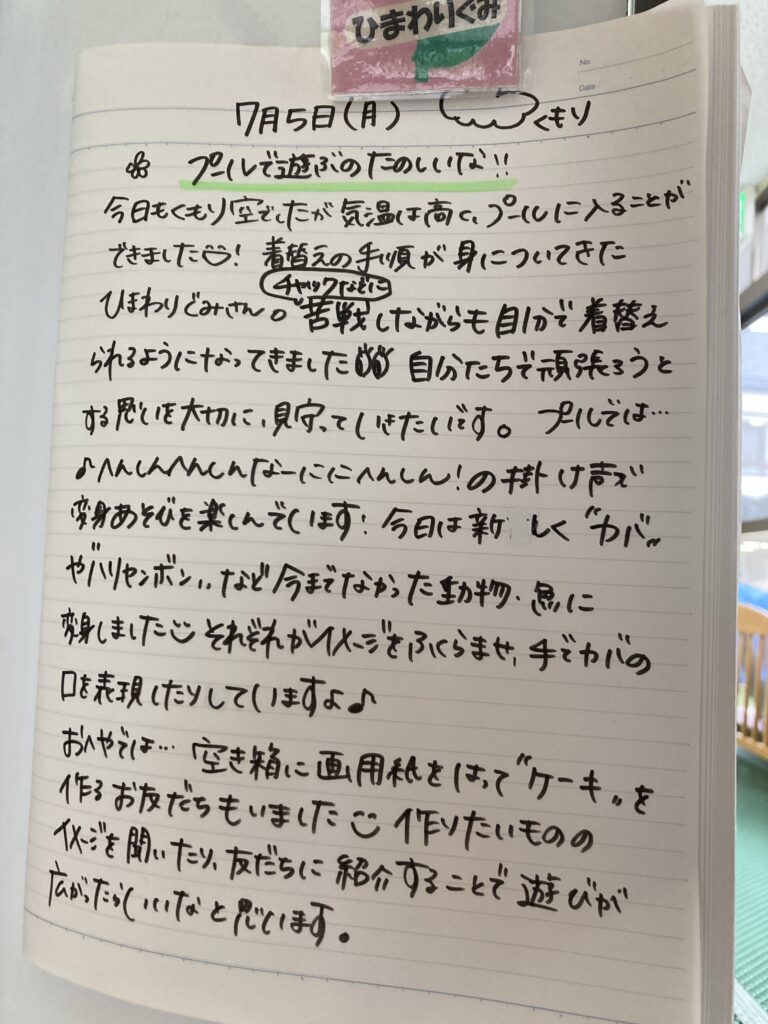 ひまわりぐみ
No.
Date
7月5日(月) くもり
プールで遊ぶのたのしいな!!
今日もくもり空でしたが気温は高く、プールに入ることが
できました! 着替えの手順が身についてきた
チャックなどに
ひまわりぐみさん。苦戦しながらも自分で着替え
られるようになってきました 自分たちで頑張ろうと
する思いを大切に、見守っていきたいです。プールでは…
♪へんしんへんしんなーににへんしん!の掛け声で
変身あそびを楽しんでいます! 今日は新しく“カバ”
や“ハリセンボン”など今までなかった動物・魚に
変身しました それぞれがイメージをふくらませ、手でカバの
口を表現したりしていますよ♪
おへやでは… 空き箱に画用紙をはって“ケーキ”を
作るお友だちもいました 作りたいものの
イメージを聞いたり、友だちに紹介することで遊びが
広がったらいいなと思います。